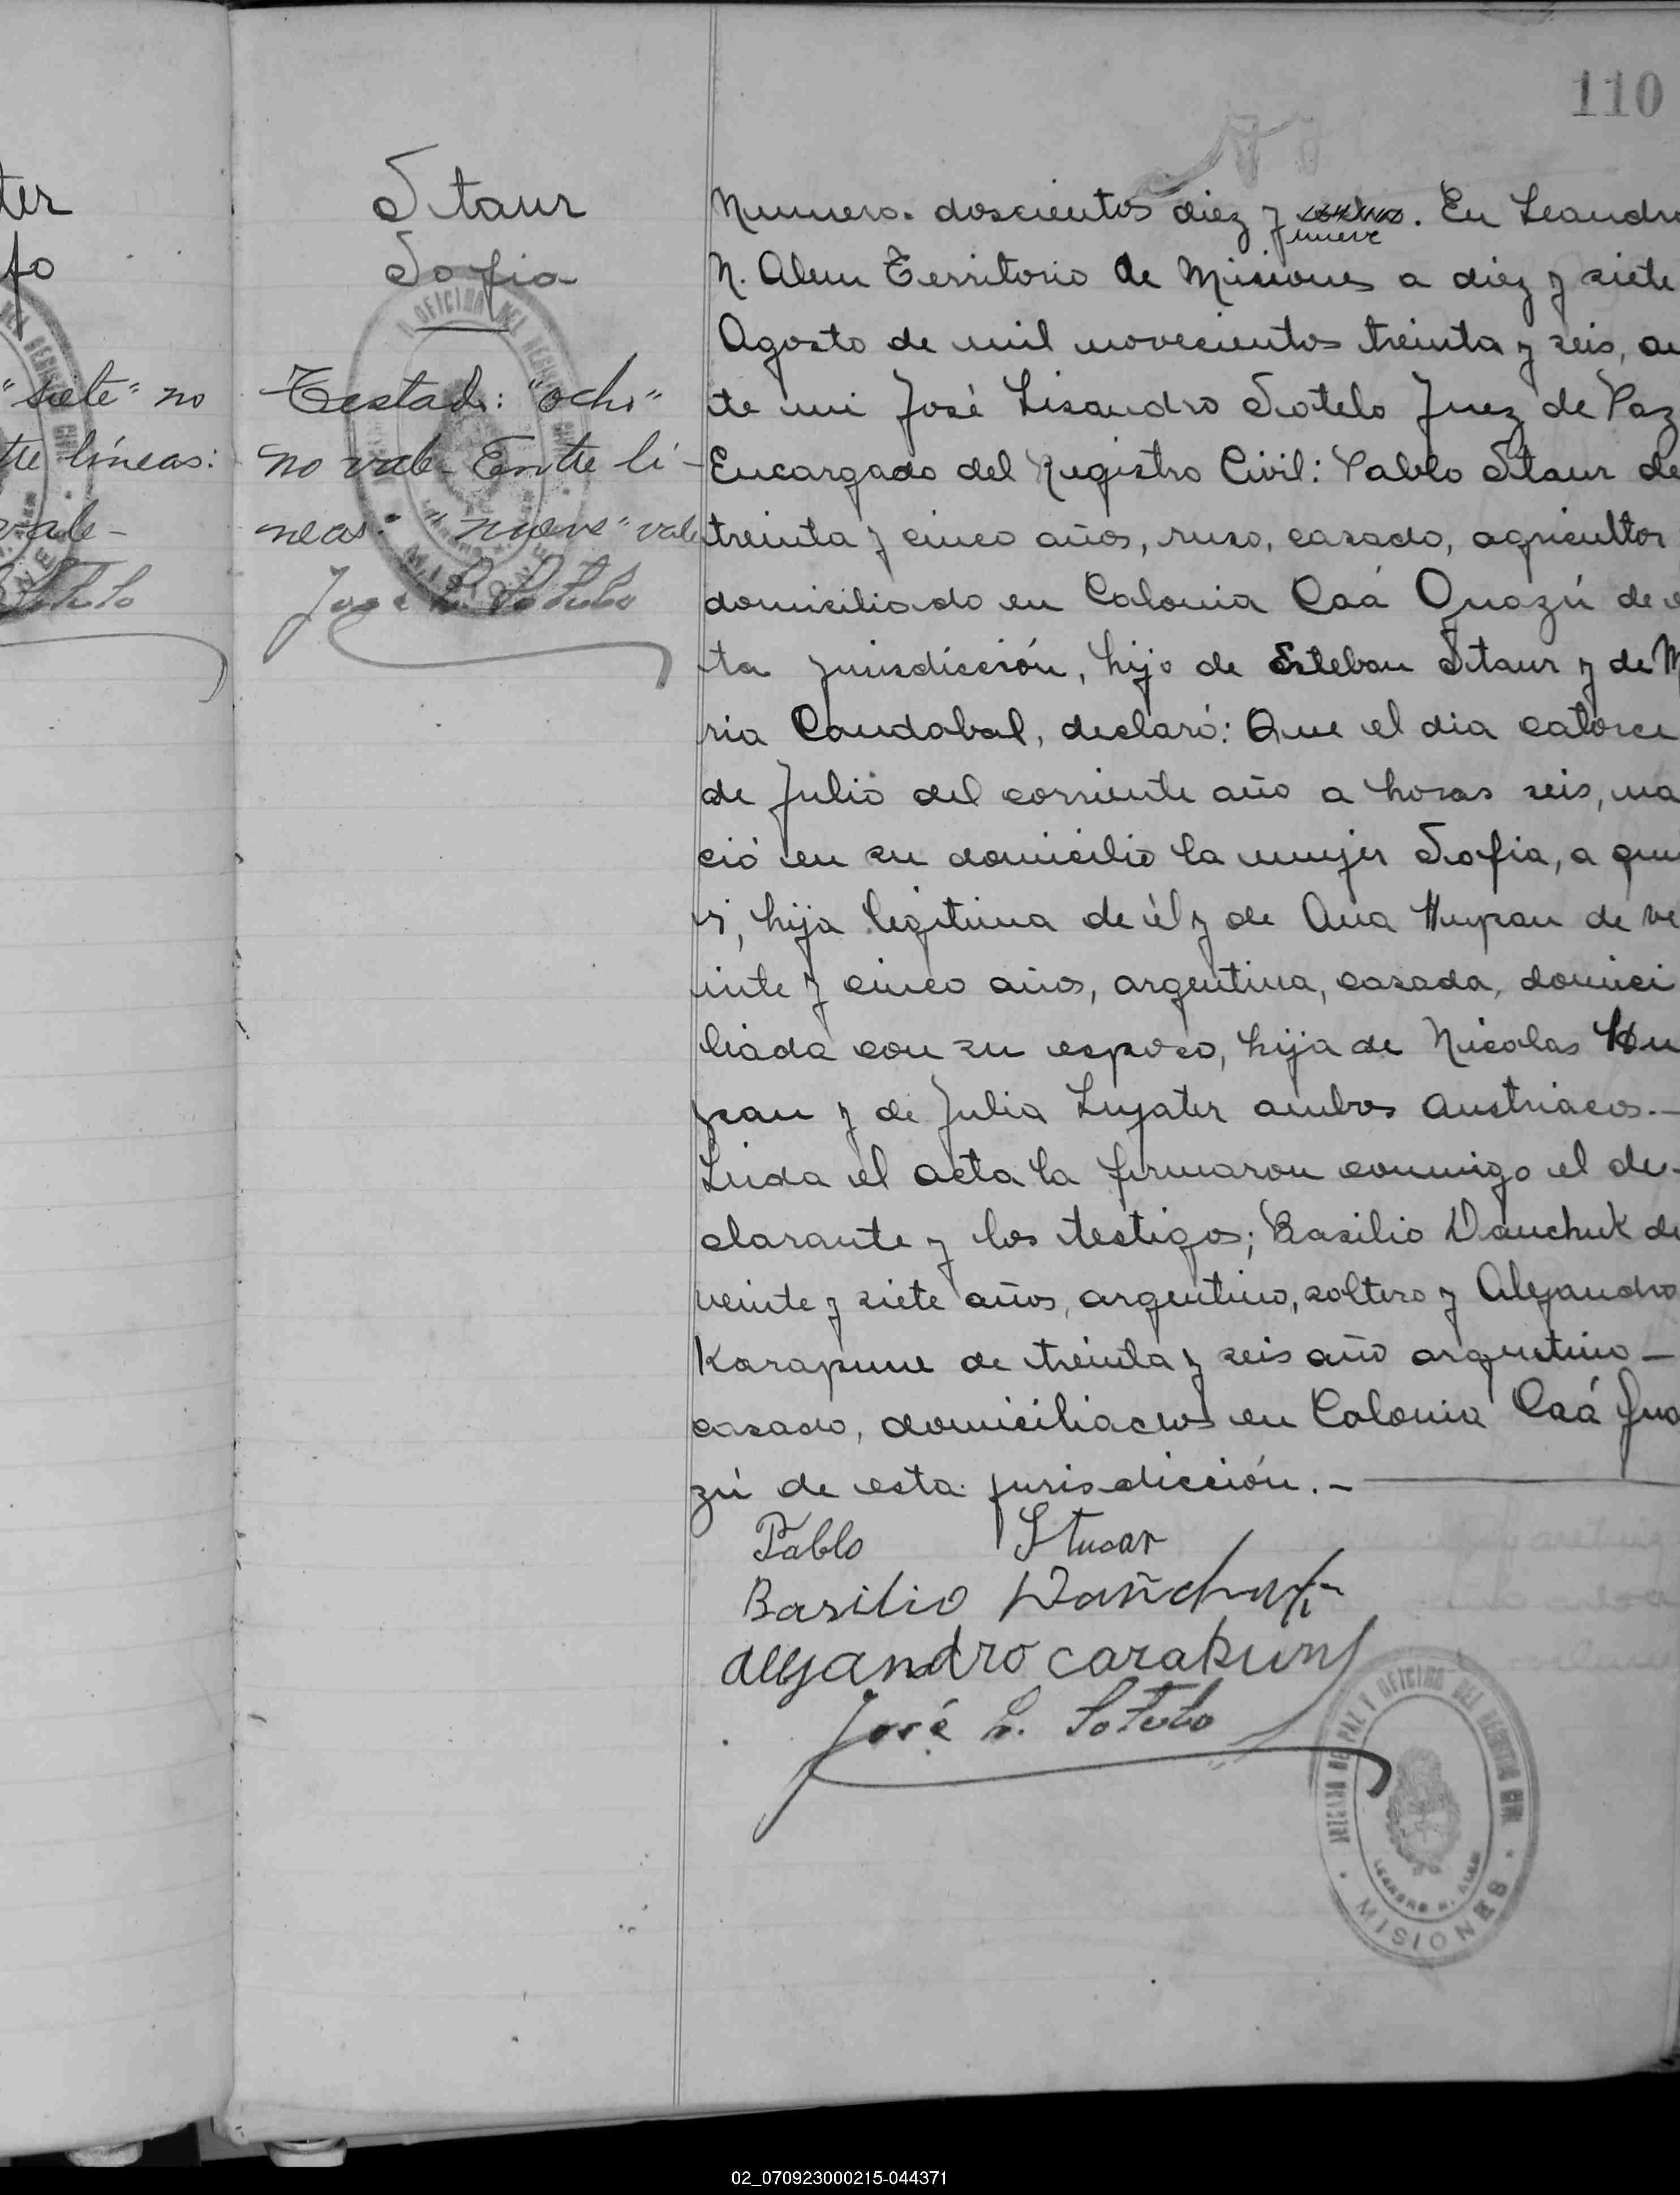 110
ter
fo
"siete" no
tre líneas:
vale-
Sotelo
Staur
Sofia
Testado: "ocho"
no vale- Entre lí-
neas: "nueve" vale
José L. Sotelo
Numero. doscientos diez y ocho. En Leandro
nueve
N. Alem Territorio de Misiones a diez y siete
Agosto de mil novecientos treinta y seis, an
te mi José Lisandro Sotelo Juez de Paz
Encargado del Registro Civil: Pablo Staur de
treinta y cinco años, ruso, casado, agricultor
domiciliado en Colonia Caá Guazú de e
ta jurisdicción, hijo de Esteban Staur y de M
ria Candabal, declaró: Que el dia catorce
de Julio del corriente año a horas seis, na
ció en su domicilio la mujer Sofia, a qui
vi, hija legitima de él y de Ana Hupan de ve
inte y cinco años, argentina, casada, domici
liada con su esposo, hija de Nicolas Hu
pan y de Julia Lujater ambos austriacos.-
Leida el acta la firmaron conmigo el de-
clarante y los testigos; Basilio Dauchuk de
veinte y siete años, argentino, soltero y Alejandro
Karapune de treinta y seis año argentino-
casado, domiciliados en Colonia Caá Gua
zú de esta jurisdicción.-
Pablo Stuar
Basilio Dañchuk
Alejandro Carakun
José L. Sotelo
OFICINA DEL REGISTRO CIVIL
MISIONES
JUZGADO DE PAZ Y OFICINA DEL REGISTRO CIVIL
LEANDRO N. ALEM
MISIONES
02_070923000215-044371